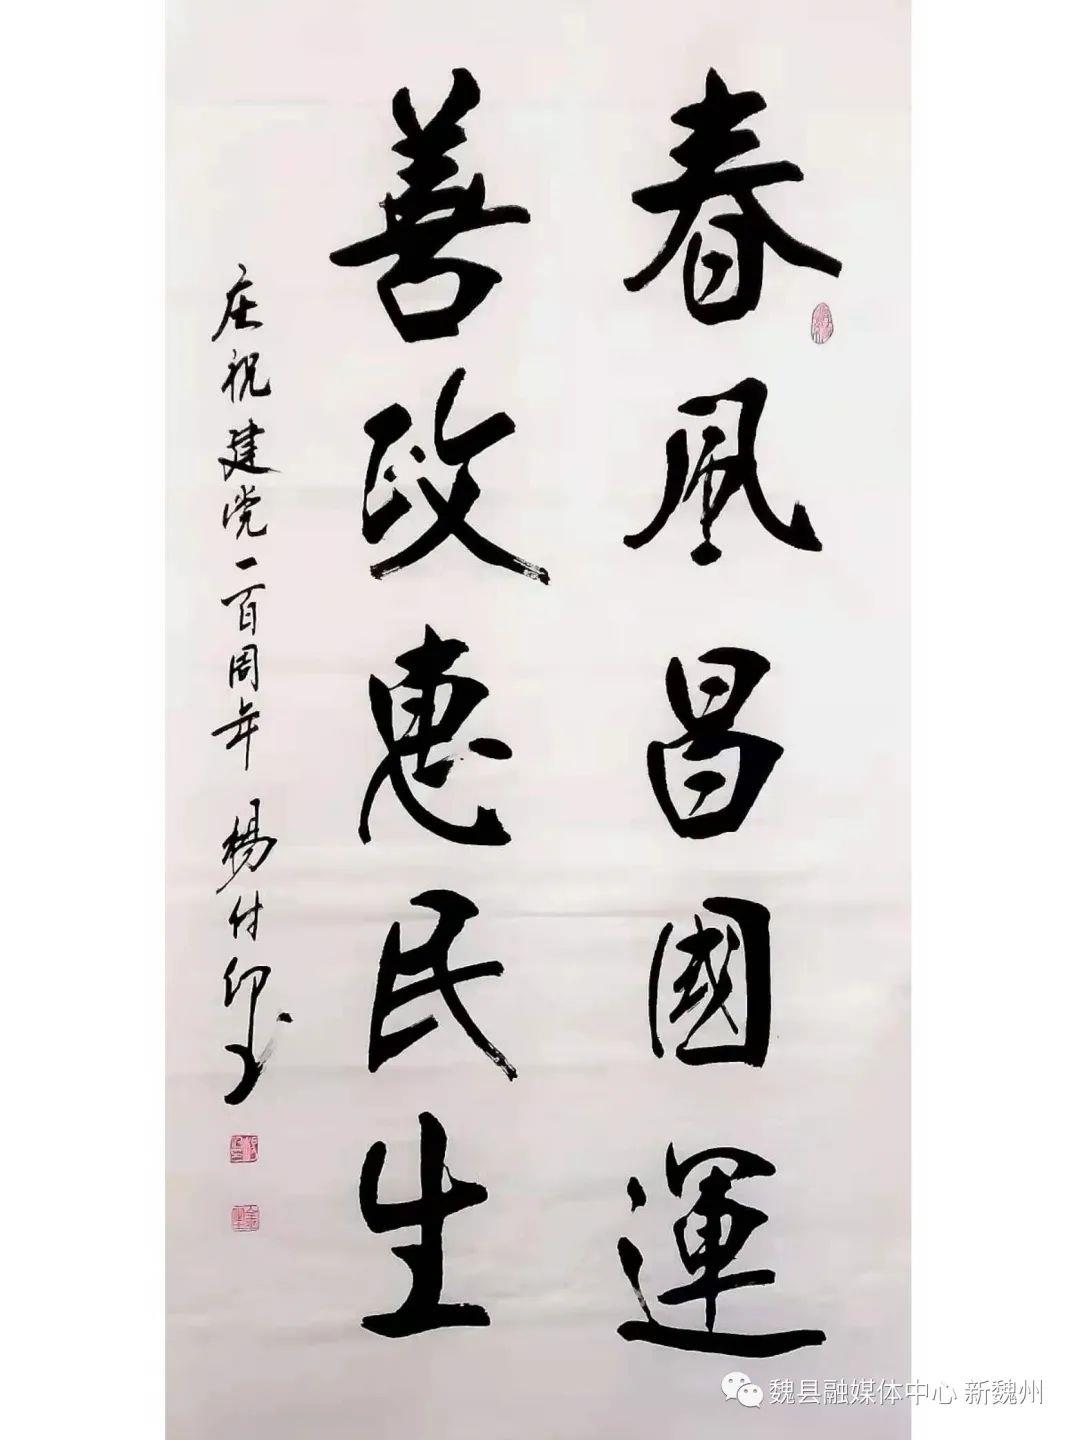 春風昌國運
善政惠民生
庄祝建党一百周年 楊付印书
魏县融媒体中心 新魏州